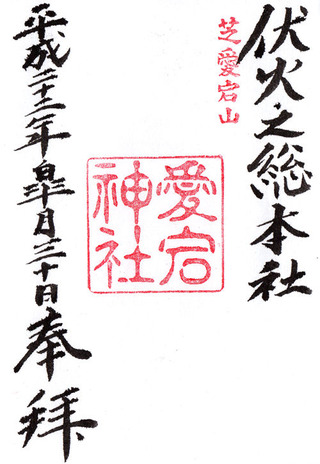 伏火之総本社
芝愛宕山
愛宕
神社
平成二十三年皐月三十日
奉拝